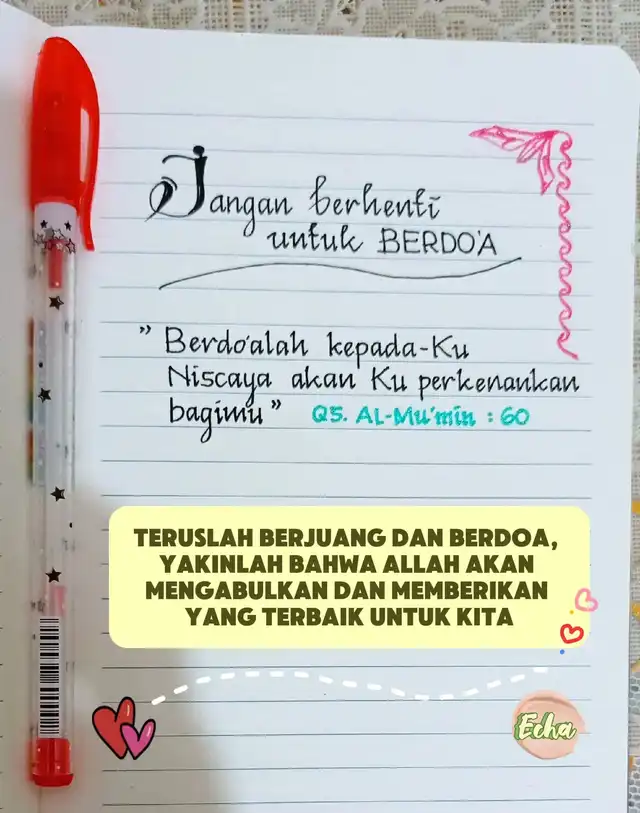 Jangan berhenti
untuk BERDO'A
" Berdo'alah kepada-Ku
Niscaya akan Ku perkenankan
bagimu" QS. AL-Mu'min : 60
TERUSLAH BERJUANG DAN BERDOA,
YAKINLAH BAHWA ALLAH AKAN
MENGABULKAN DAN MEMBERIKAN
YANG TERBAIK UNTUK KITA
Echa